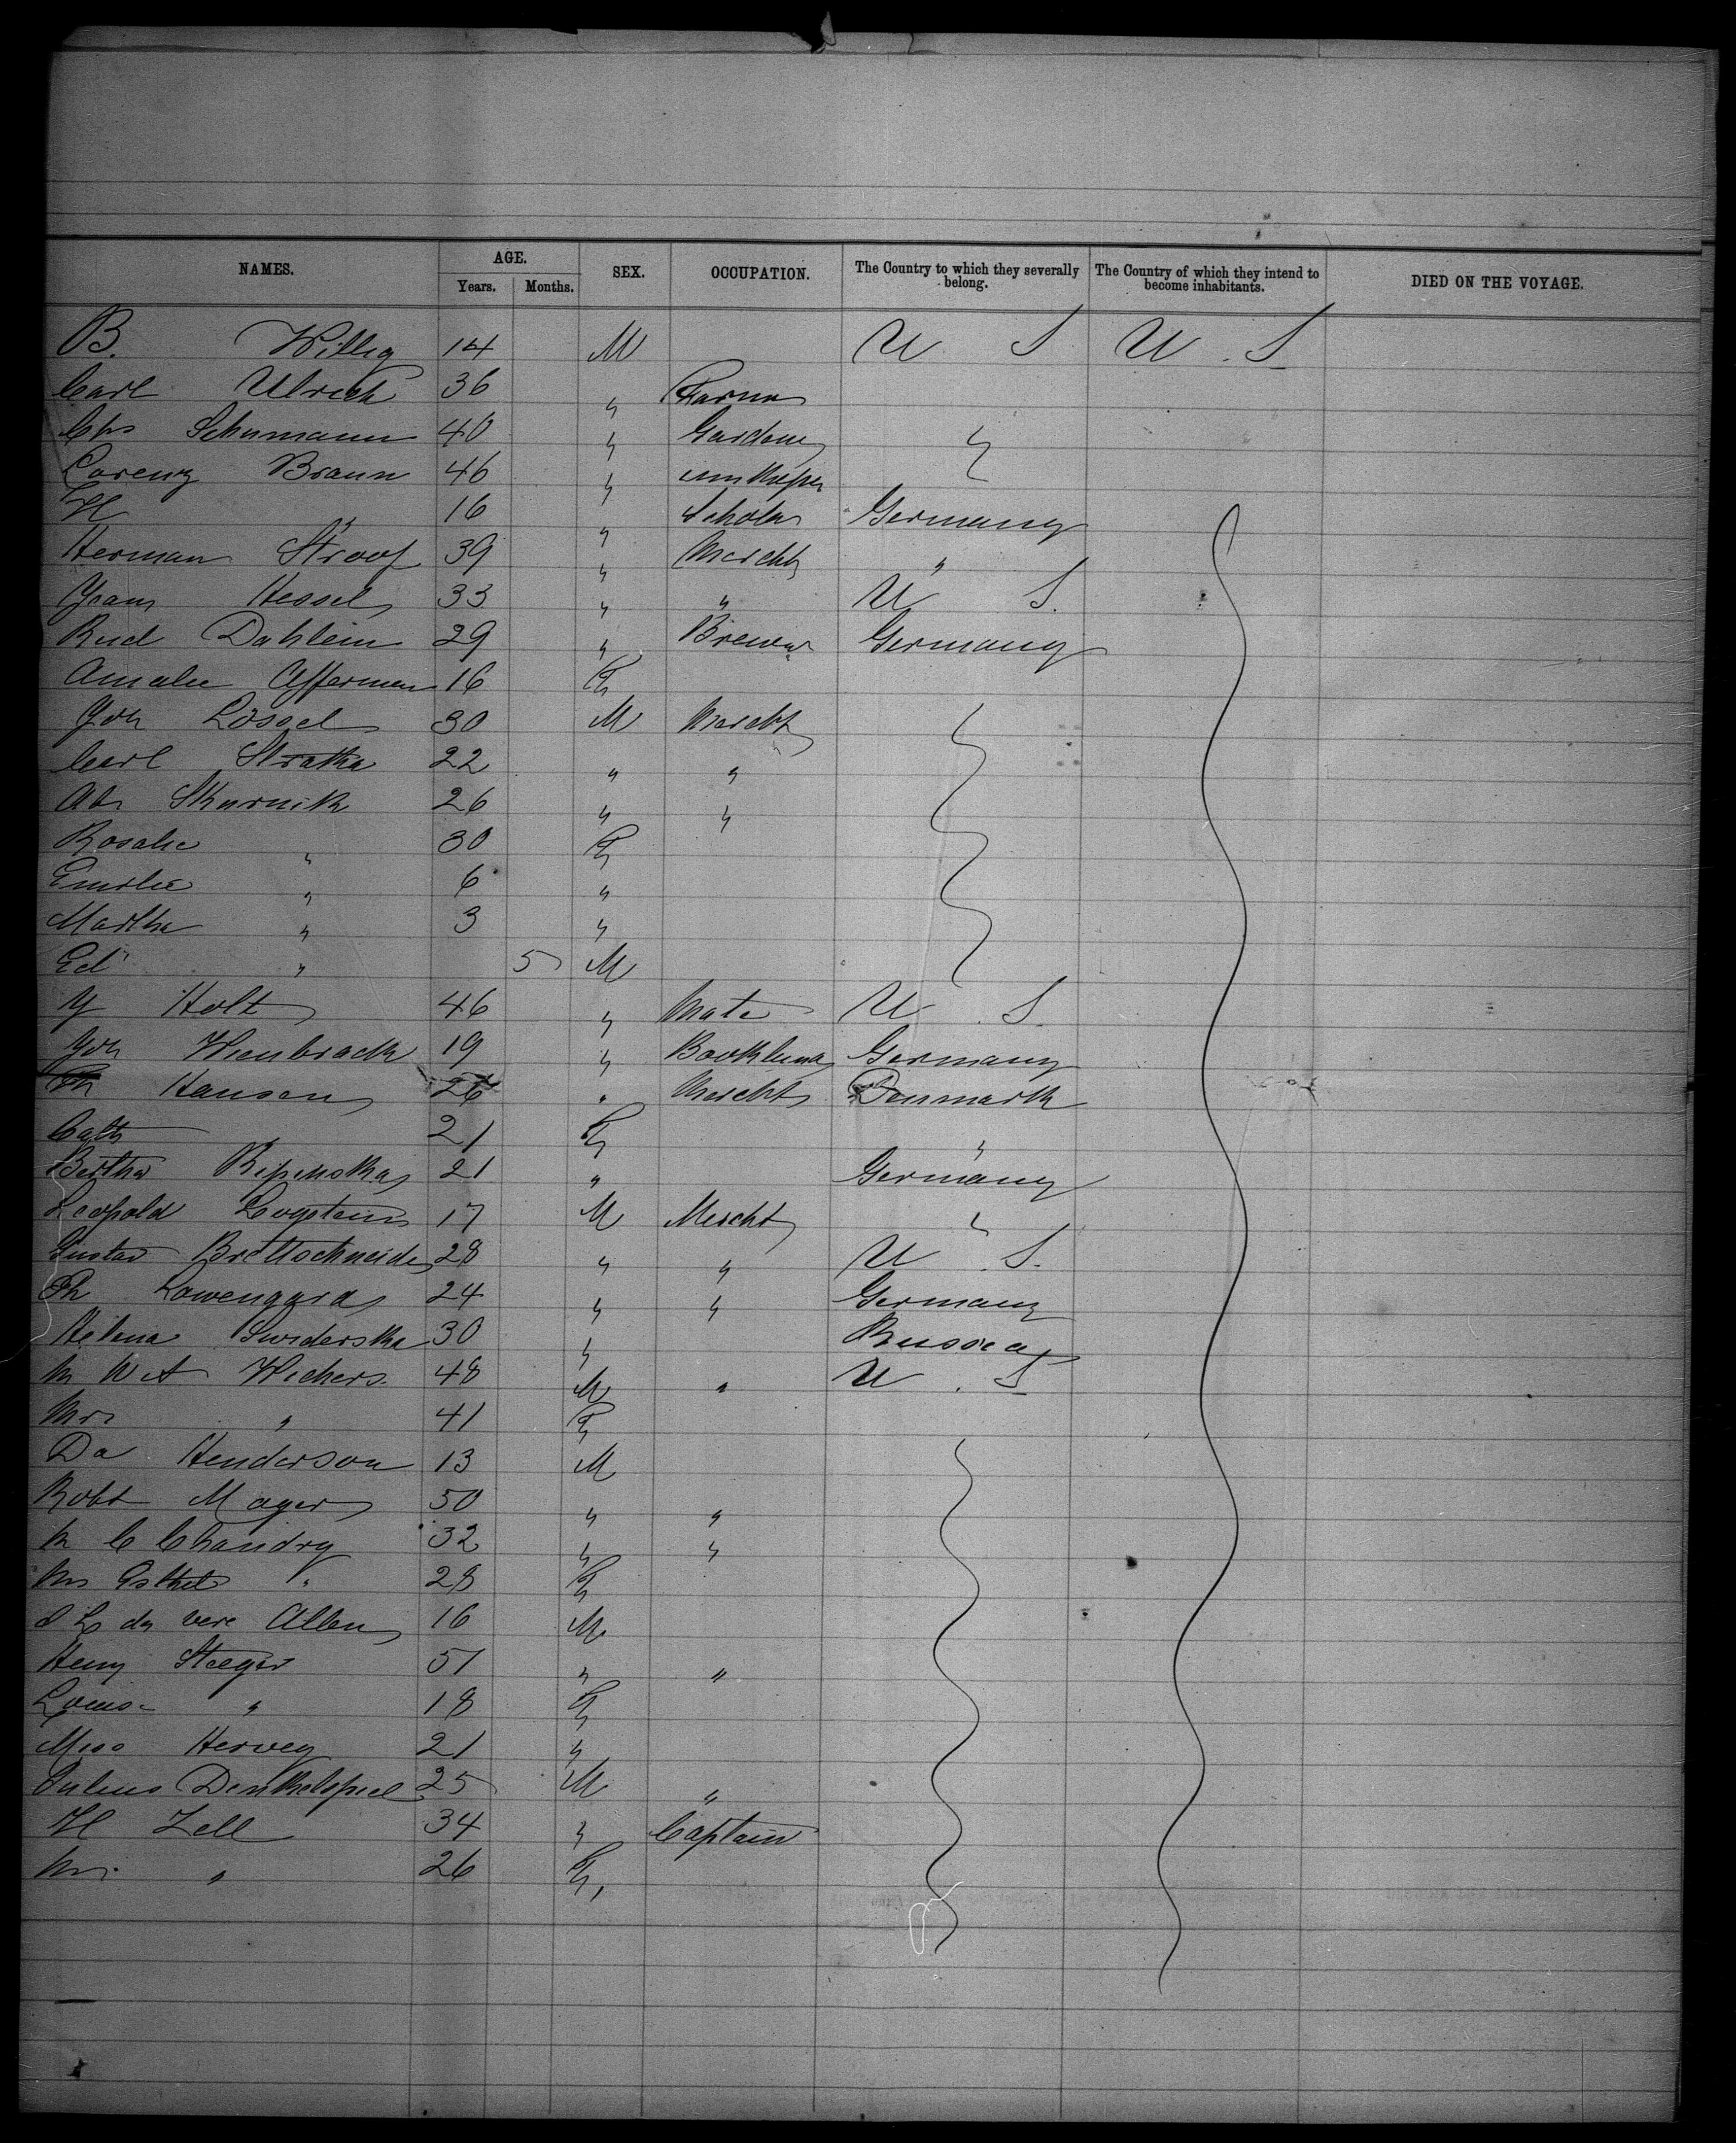 NAMES. AGE. SEX. OCCUPATION. The Country to which they severally belong. The Country of which they intend to become inhabitants. DIED ON THE VOYAGE.
Years. Months.
B. Willig 14 M U S U. S
Carl Ulrich 36 " Farmer
Chs Schumann 40 " "
Lorenz Braun 46 " "
H " 16 " Scholar Germany
Herman Stroof 39 " Mercht "
Jean Hessel 33 " " U S.
Rud Dahlem 29 " Brewer Germany
Amalie 16 F
Joh Lössel 30 M Mercht
Carl Stratka 22 " "
Ab Skurnik 26 " "
Rosalie " 30 F
Emilie " 6 "
Martha " 3 "
Ed " 5 M
J Holt 46 " Mate U. S.
Joh Wienbrack 19 " Germany
Hansen 26 " Mercht Denmark
Cath 21 F "
Bertha Ripinska 21 " Germany
Leopold 17 M Mercht "
Gustav Brettschneider 28 " " U. S.
Th Lowengard 24 " " Germany
Helena Swiderska 30 " Russia
Wichers 48 M " U. S
Mrs " 41 F
Da Henderson 13 M
Robt Mayer 50 " "
M C Chandry 32 " "
Mrs Esthel " 28 F
Vere Allen 16 M
Henry Steeger 51 " "
Louise " 18 F
Miss Hervey 21 "
Julius Dinkelspiel 25 M "
H Zell 34 " Captain
Mrs " 26 F